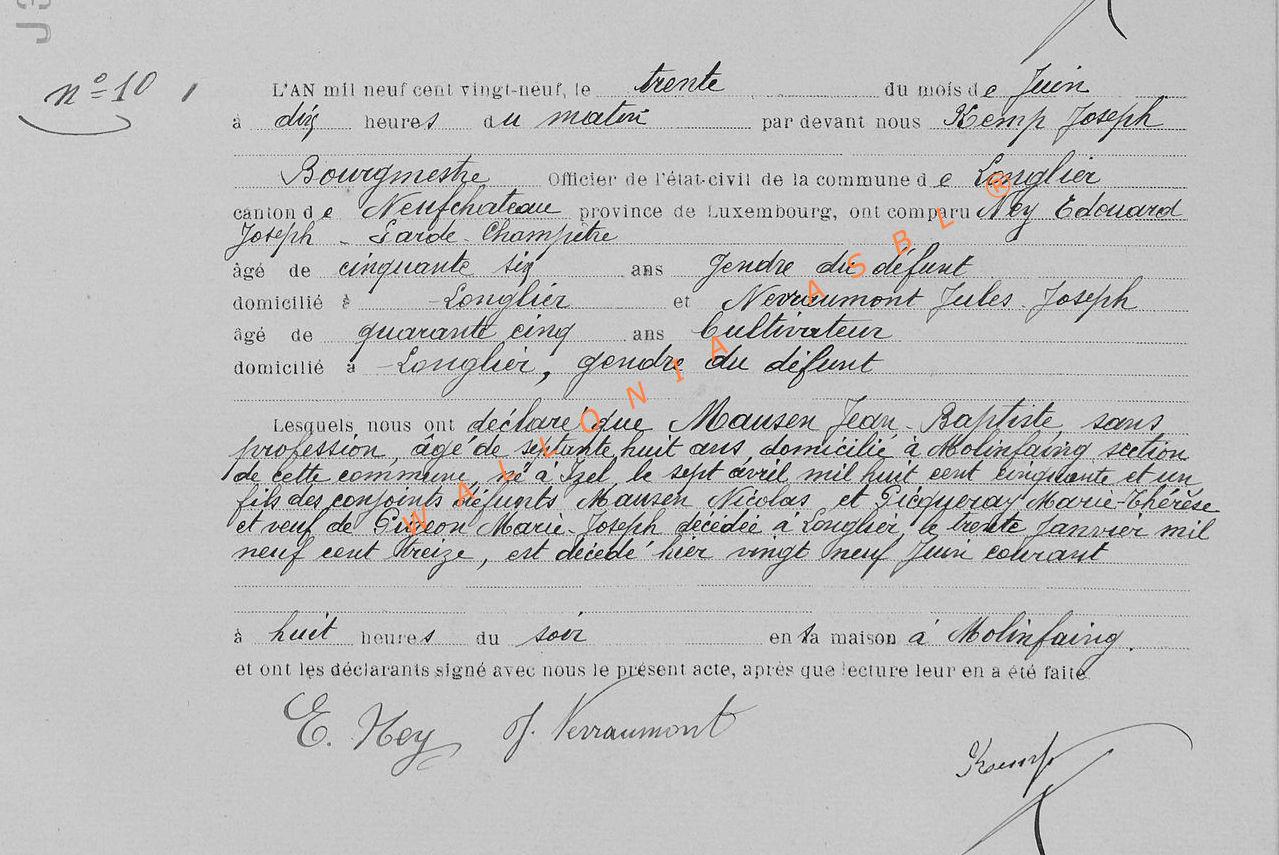 n° 10
L'AN mil neuf cent vingt-neuf, le trente du mois de Juin
à dix heures du matin par devant nous Kemp Joseph
Bourgmestre Officier de l'état-civil de la commune de Longlier
canton de Neufchateau province de Luxembourg, ont comparu Ney Edouard
Joseph - Garde-Champêtre
âgé de cinquante six ans gendre du défunt
domicilié à Longlier et Nerraumont Jules-Joseph
âgé de quarante cinq ans Cultivateur
domicilié à Longlier, gendre du défunt
Lesquels nous ont déclaré que Mausen Jean-Baptiste sans
profession, âgé de septante huit ans, domicilié à Molinfaing section
de cette commune, né à Izel, le sept avril mil huit cent cinquante et un
fils des conjoints défunts Mausen Nicolas et Picqueray Marie-Thérèse
et veuf de Marie-Joseph décédée à Longlier, le trente Janvier mil
neuf cent treize, est décédé hier vingt neuf Juin courant
à huit heures du soir en sa maison à Molinfaing.
et ont les déclarants signé avec nous le présent acte, après que lecture leur en a été faite.
E. Ney J. Nerraumont
Kemp
WALLONIA ASBL ®